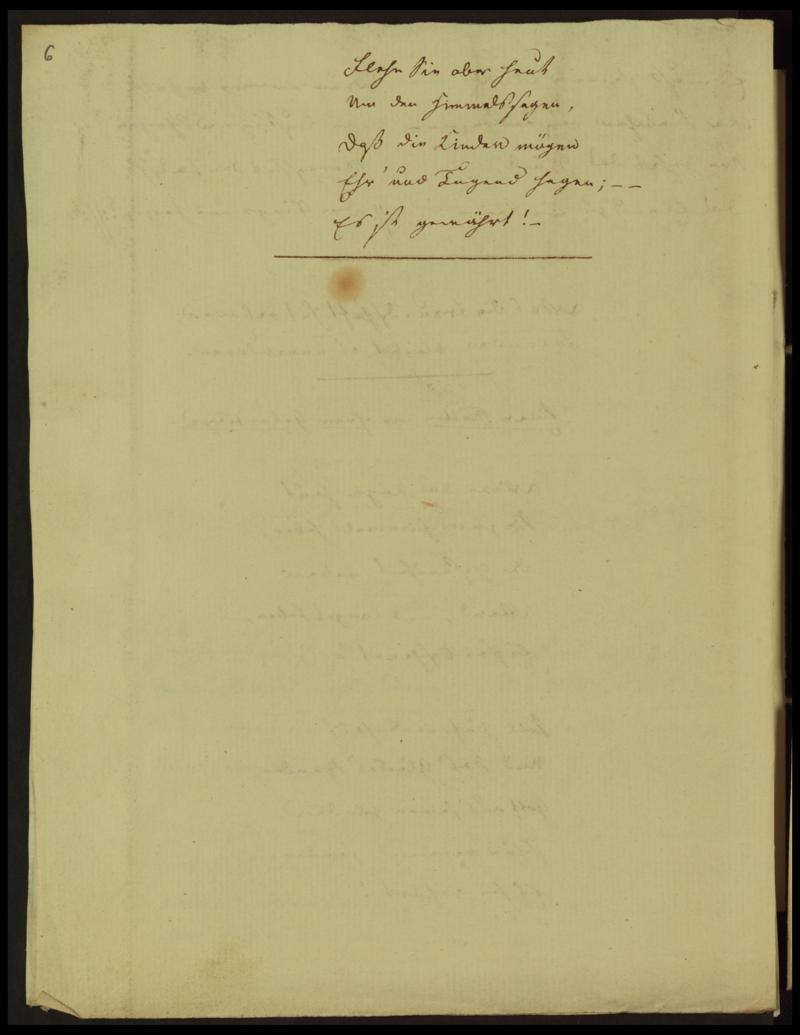 6
Flehn Sie aber heut
Um den Himmelssegen,
Daß die Kinder mögen
Ehr' und Tugend hegen; – –
Es ist gewährt! –